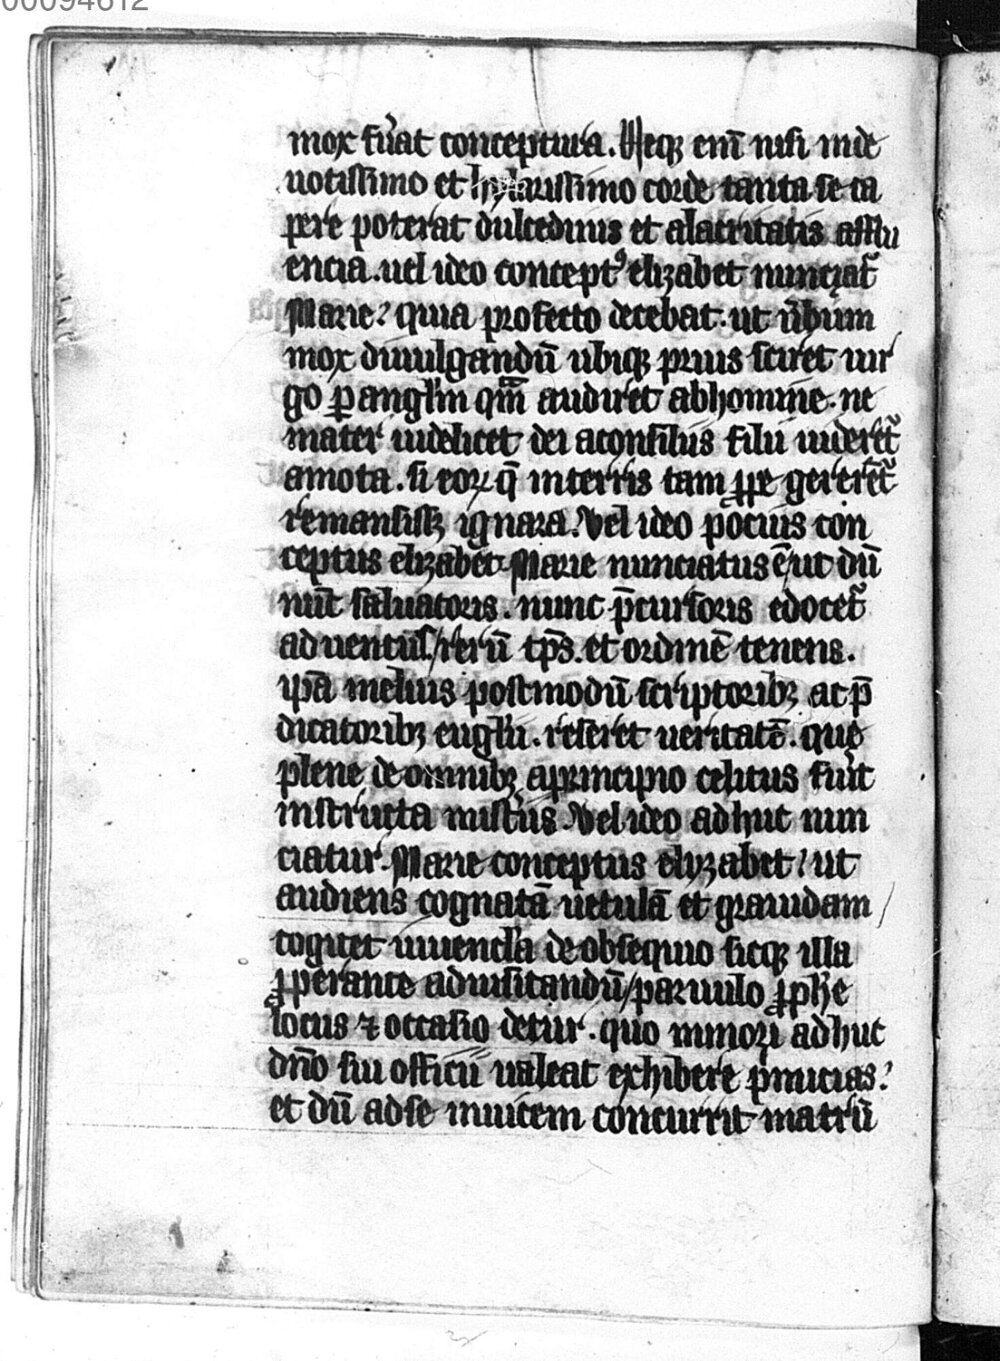 00094612
mox fūat conceptura. Neq; em̄ nisi in de
uotissimo et hylarissimo corde tanta se ca
pere poterat dulcedinis et alacritatis afflu
encia. uel ideo concept⁹ elizabet nunciat᷑
Marie? quia profecto decebat. ut ūbum
mox diuulgandū ubiq; prius sciret uir
go ꝑ angl̄m qm̄ audiret abhomine. ne
mater uidelicet dei aconsiliis filii uideret᷑
amota. si eoꝝ q̄ interris tam ꝓpe gererēt᷑
remansiss; ignara. Vel ideo pocius con
ceptus elizabet Marie nunciatus ē/ ut dū
nūc saluatoris. nunc p̄cursoris edocet᷑
aduentus/ rerū tp̄s. et ordinē tenens.
ip̄a melius postmodū scriptorib; ac p̄
dicatorib; euglii. reseret ueritatē. quę
plene de omnib; aprincipio celitus fūit
instructa mist̄iis. Vel ideo adhuc nun
ciatur Marie conceptus elyzabet? ut
audiens cognatā uetulā et grauidam
cogitet iuuencl̄a de obsequio sicq; illa
ꝓperante aduisitandū/ paruulo ꝓph̄e
locus ⁊ occasio detur. quo minori adhuc
dn̄o sui officii ualeat exhibere p̄micias?
et dū adse inuicem concurrit matrū